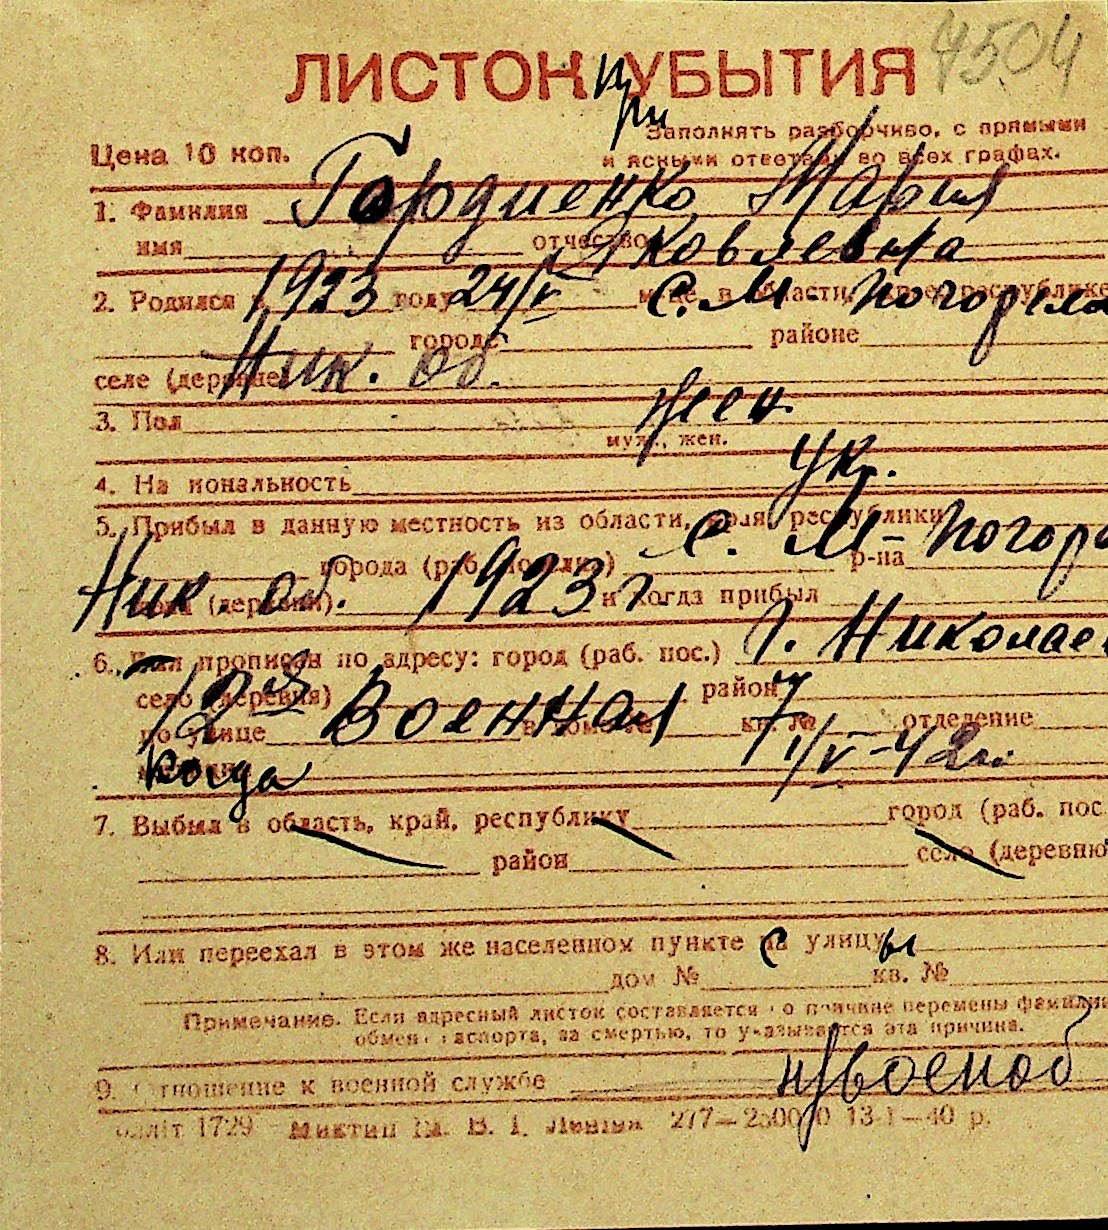 7504
ЛИСТОК УБЫТИЯ
при
Заполнять разборчиво, с прямыми
Цена 10 коп.
и ясными ответами во всех графах.
1. Фамилия Гордиенко Мария
имя отчество Яковлевна
2. Родился в 1923 году 24/V м-це, в области, крае, республике С. М Погорело
городе районе
селе (деревне) Ник. об.
3. Пол жен.
муж., жен.
4. Национальность Ук.
5. Прибыл в данную местность из области, края, республики С. М-Погоре
города (раб. поселка) р-на
села (деревни) Ник об. 1923 г и когда прибыл
6. Был прописан по адресу: город (раб. пос.) г. Николаев
село (деревня) район
по улице 12ая Военная в доме № 7 кв. № отделение
когда 1/V-42г.
7. Выбыл в область, край, республику город (раб. пос.
район село (деревню
8. Или переехал в этом же населенном пункте с улицы
дом № кв. №
Примечание. Если адресный листок составляется по причине перемены фамилии
обмена паспорта, за смертью, то указывается эта причина.
9. Отношение к военной службе н/военоб
1729 277— 13 1—40 р.